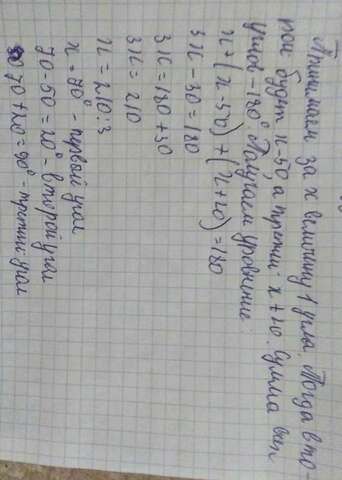 Принимаем за х величину 1 угла. Тогда вто-
рой будет х-50, а третий х+20. Сумма всех
углов -180°. Получаем уравнение:
х+(х-50)+(х+20)=180
3х-30=180
3х=180+30
3х=210
х=210:3
х=70° - первый угол
70-50=20° - второй угол
70+20=90° - третий угол